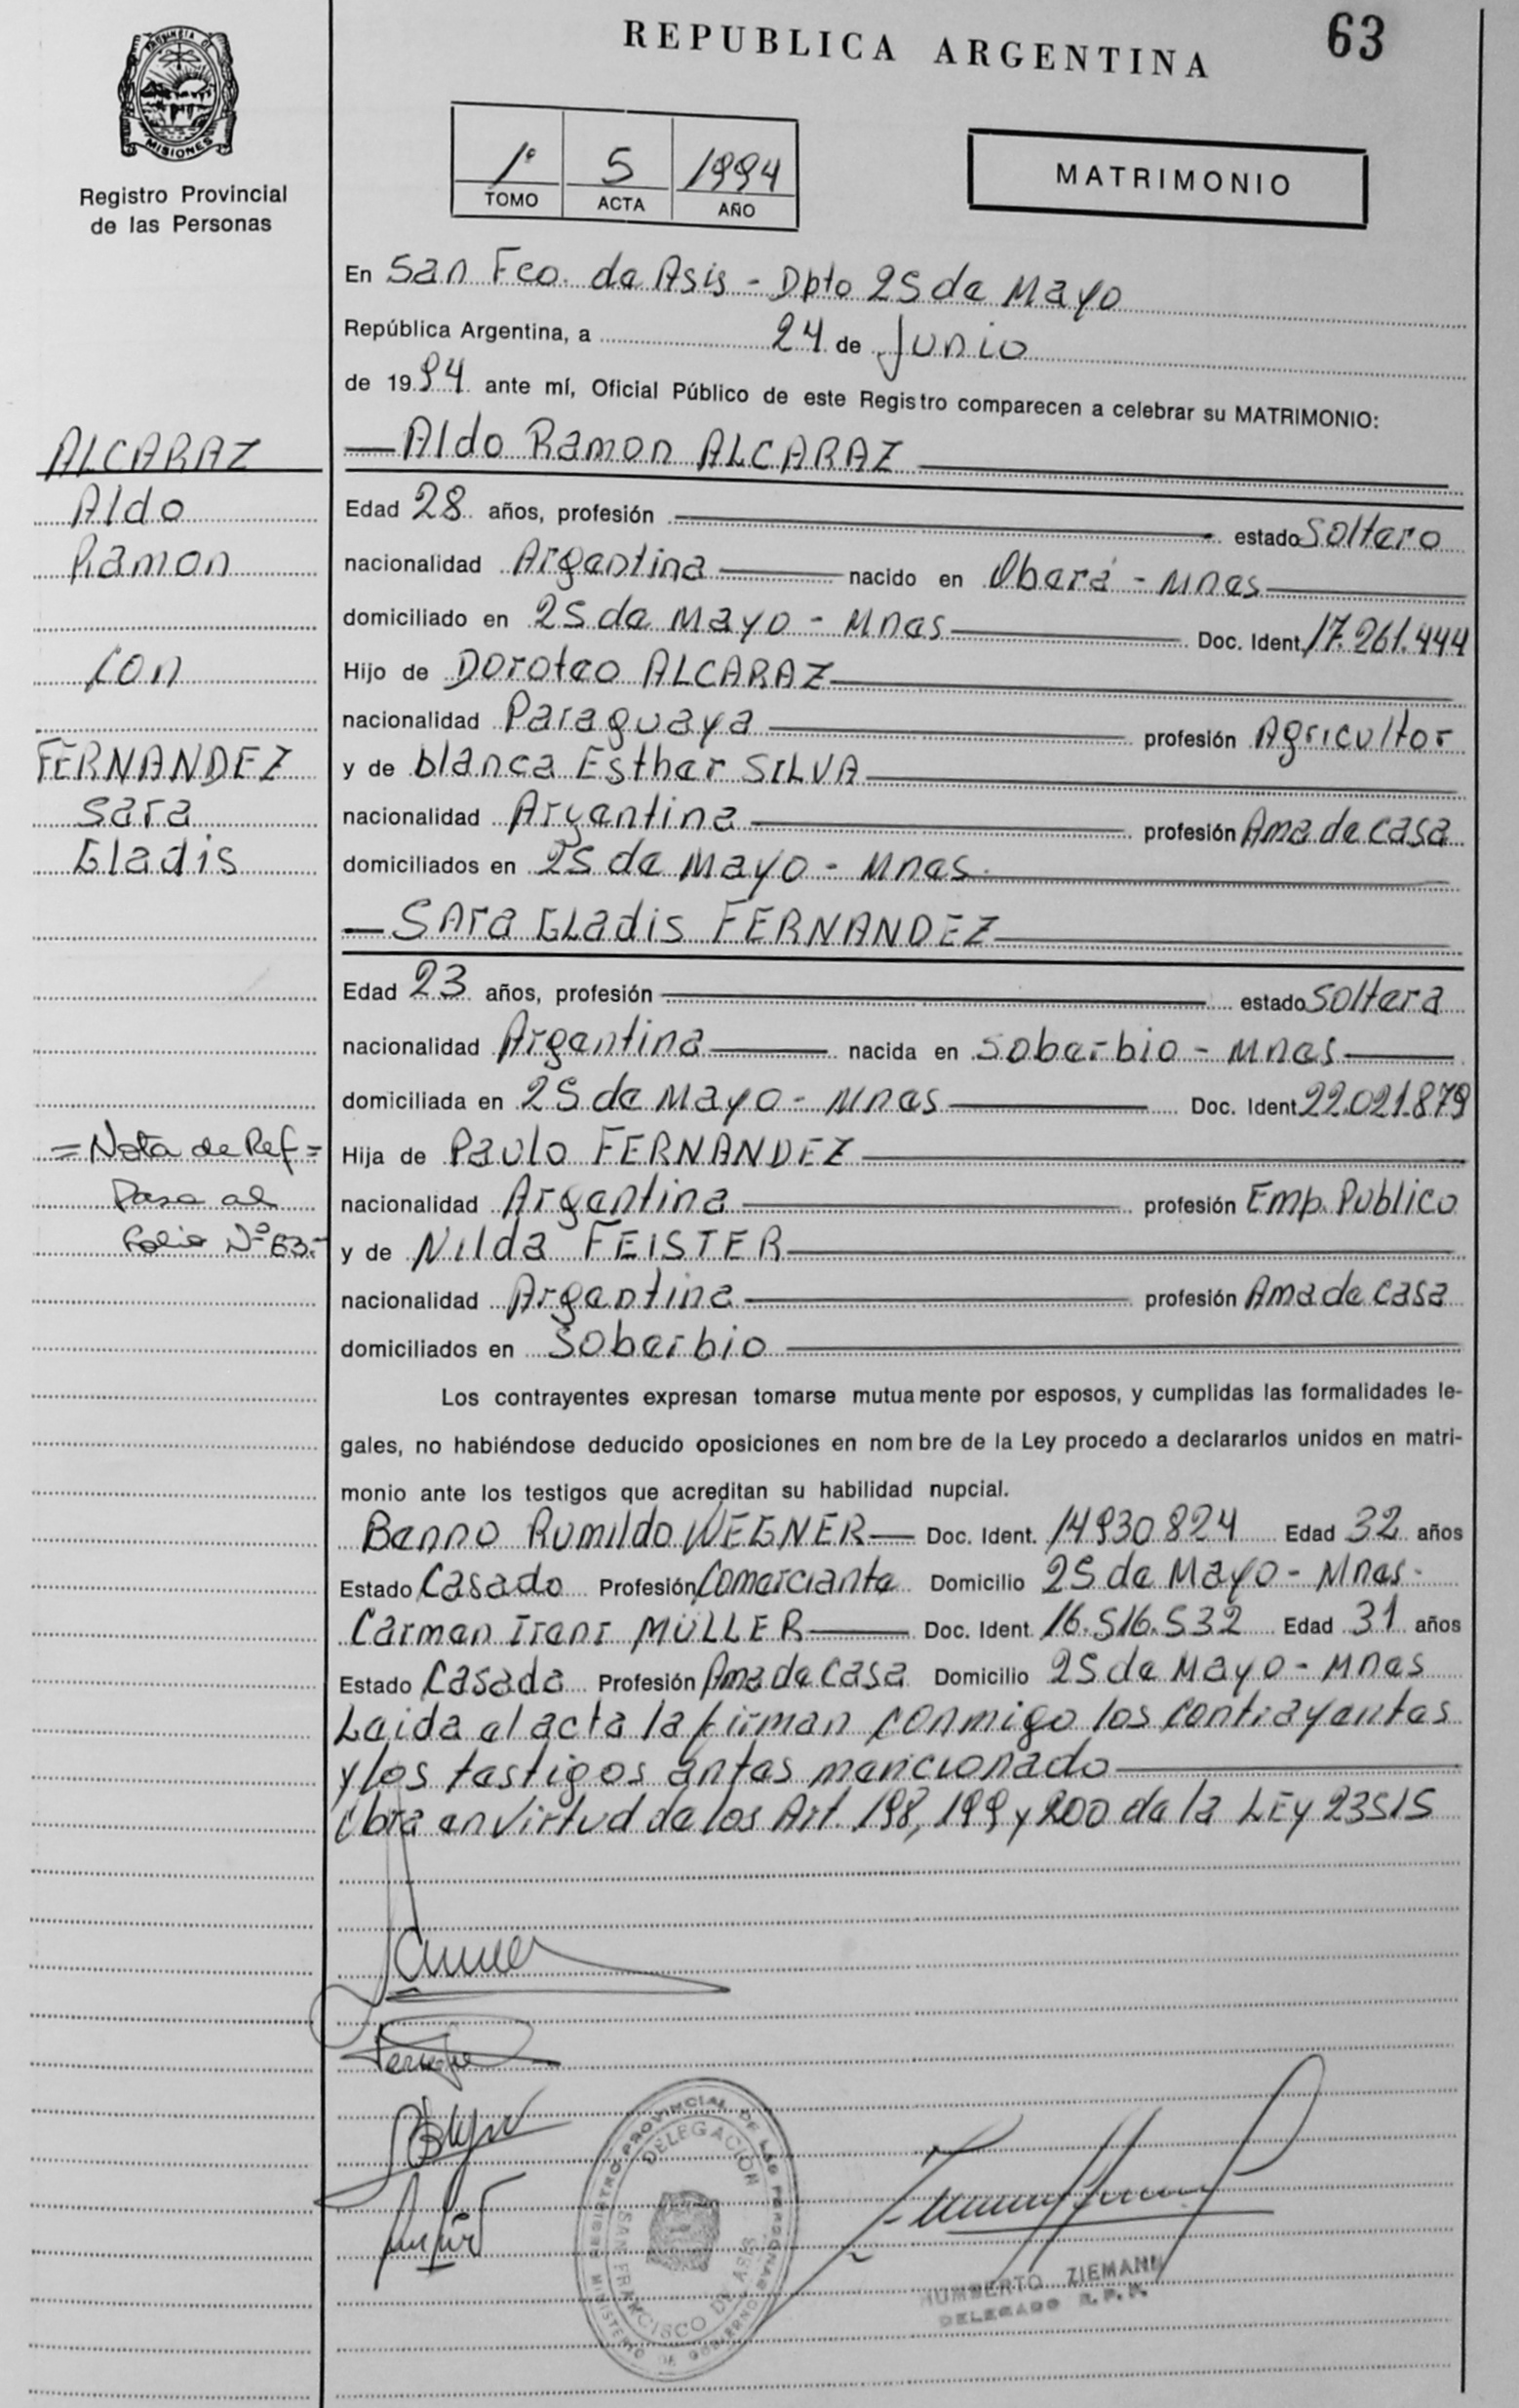 REPUBLICA ARGENTINA
63
PROVINCIA DE
MISIONES
Registro Provincial
de las Personas
1º 5 1994
TOMO ACTA AÑO
MATRIMONIO
En San Fco. de Asis - Dpto 25 de Mayo
República Argentina, a 24 de Junio
de 1994 ante mí, Oficial Público de este Registro comparecen a celebrar su MATRIMONIO:
ALCARAZ
Aldo
Ramon
con
FERNANDEZ
Sara
Gladis
— Aldo Ramon ALCARAZ
Edad 28 años, profesión estado Soltero
nacionalidad Argentina nacido en Oberá - Mnes
domiciliado en 25 de Mayo - Mnes Doc. Ident. 17.261.444
Hijo de Doroteo ALCARAZ
nacionalidad Paraguaya profesión Agricultor
y de blanca Esther SILVA
nacionalidad Argentina profesión Ama de casa
domiciliados en 25 de Mayo - Mnes.
— SAra GLadis FERNANDEZ
Edad 23 años, profesión estado Soltera
nacionalidad Argentina nacida en Soberbio - Mnes
domiciliada en 25 de Mayo - Mnes Doc. Ident. 22.021.879
= Nota de Ref =
Pasa al
folio Nº 63.-
Hija de Paulo FERNANDEZ
nacionalidad Argentina profesión Emp. Publico
y de Nilda FEISTER
nacionalidad Argentina profesión Ama de casa
domiciliados en Soberbio
Los contrayentes expresan tomarse mutuamente por esposos, y cumplidas las formalidades le-
gales, no habiéndose deducido oposiciones en nombre de la Ley procedo a declararlos unidos en matri-
monio ante los testigos que acreditan su habilidad nupcial.
Benno Rumildo WEGNER Doc. Ident. 14.930.824 Edad 32 años
Estado Casado Profesión Comerciante Domicilio 25 de Mayo - Mnes-
Carmen Irene MÜLLER Doc. Ident. 16.516.532 Edad 31 años
Estado Casada Profesión Ama de casa Domicilio 25 de Mayo - Mnes
Leida el acta la firman conmigo los contrayentes
y los testigos antes mencionado
Obra en virtud de los Art. 198, 199 y 200 de la LEy 23515
REGISTRO PROVINCIAL DE LAS PERSONAS
DELEGACION
SAN FRANCISCO DE ASIS
MINISTERIO DE GOBIERNO
HUMBERTO ZIEMANN
DELEGADO R.P.P.